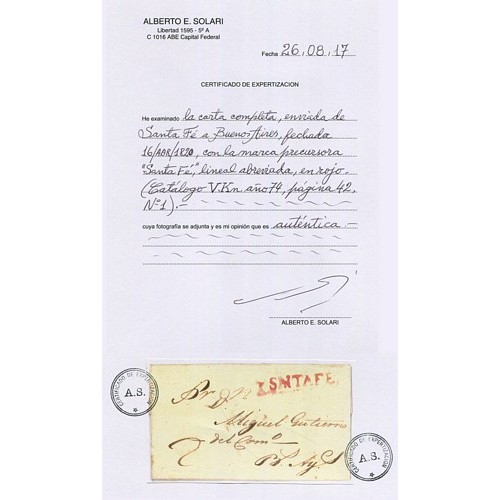 ALBERTO E. SOLARI
Libertad 1595 - 5º A
C 1016 ABE Capital Federal
Fecha 26.08.17
CERTIFICADO DE EXPERTIZACION
He examinado la carta completa, enviada de
Santa Fé a Buenos Aires, fechada
16/ABR/1820, con la marca precursora
"Santa Fé," lineal abreviada, en rojo
(Catálogo V.Kn. año 74, página 42,
Nº 1).-
cuya fotografía se adjunta y es mi opinión que es auténtica.-
ALBERTO E. SOLARI
CERTIFICADO DE EXPERTIZACION
A.S.
SNTAFE
Miguel Gutierres
del Como
Bs Ays
CERTIFICADO DE EXPERTIZACION
A.S.